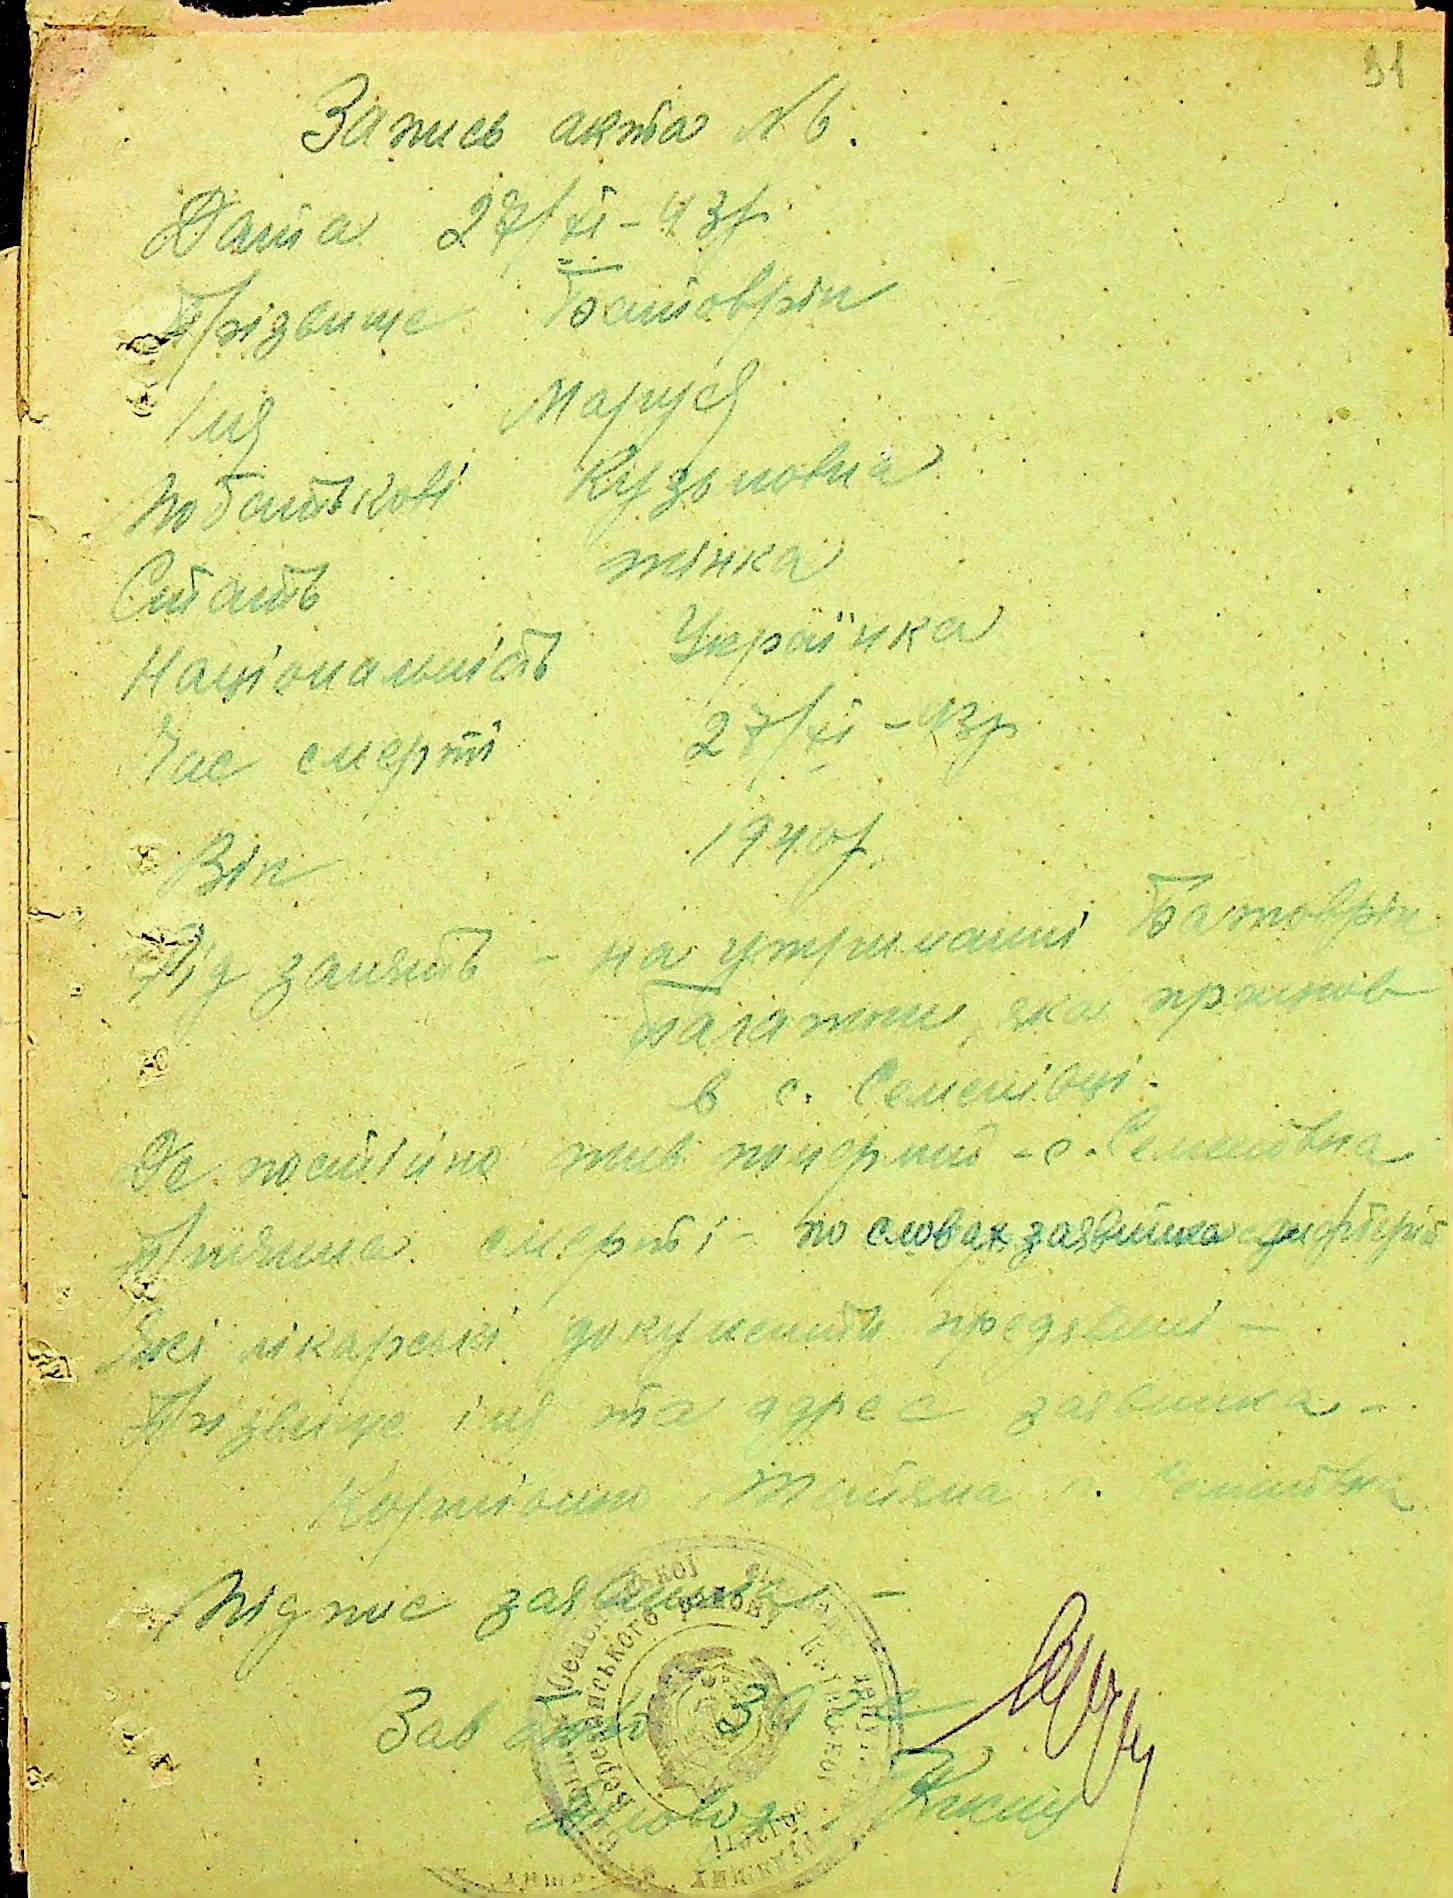 31
Запись акта № 6.
Дата 27/XI-43р
Прізвище Батоврін
Імя Маруся
По батькові Кузьмовна
Стать жінка
Національність Українка
Час смерті 27/XI-43р
Вік 1940р.
Рід занять - на утриманні Батоврін
яка прожив
в с. Семенівці.
Де постійно жив померший - с. Семенівка
Причина смерті - по словах заявника дифтерія
Які лікарські документи предявлені -
Прізвище імя та адрес заявника -
Тетяна с. Семенівка
Підпис заявника -
Зав бюро ЗАГС
Діловод
Березанського району Київської області